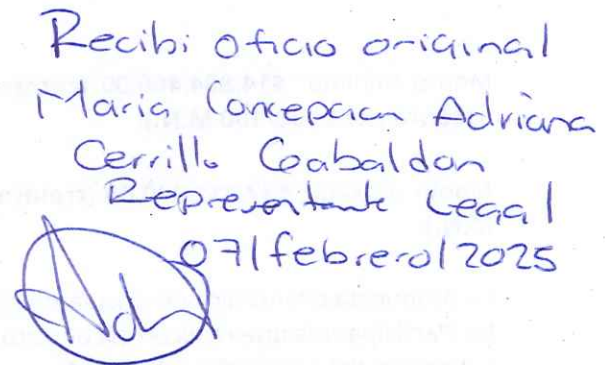 Recibi oficio original
Maria Concepcion Adriana
Cerrillo Gabaldon
Representante Legal
07/febrero/2025